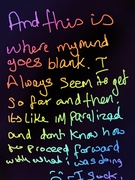 And this is
where my mind
goes blank. I
Always seem to get
so far and then
its like im paralized
and dont know how
to proceed forward
with what i was doing
I suck.